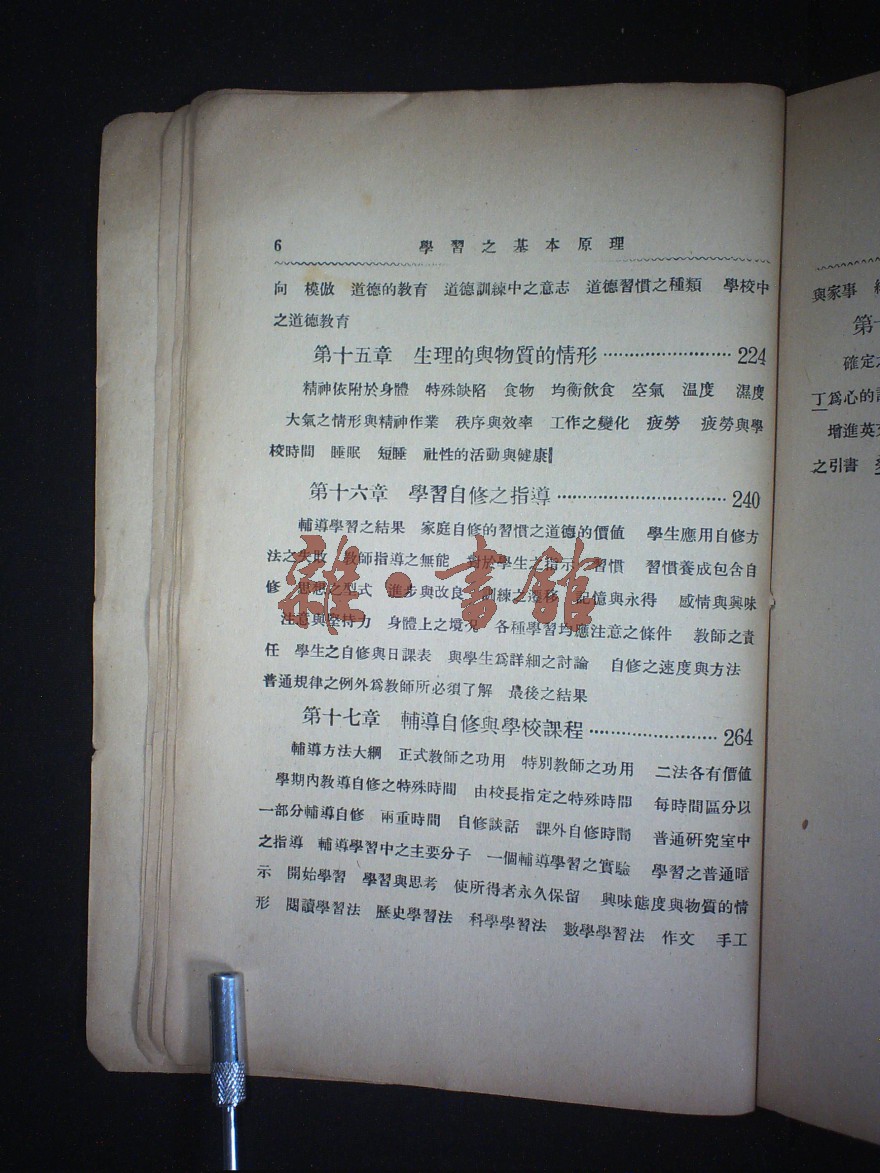 6 學習之基本原理
向 模倣 道德的教育 道德訓練中之意志 道德習慣之種類 學校中
之道德教育
第十五章 生理的與物質的情形……………………224
精神依附於身體 特殊缺陷 食物 均衡飲食 空氣 溫度 濕度
大氣之情形與精神作業 秩序與效率 工作之變化 疲勞 疲勞與學
校時間 睡眠 短睡 社性的活動與健康
第十六章 學習自修之指導……………………240
輔導學習之結果 家庭自修的習慣之道德的價值 學生應用自修方
法之失敗 教師指導之無能 對於學生之指示 習慣 習慣養成包含自
修 思想之型式 進步與改良 訓練之遷移 記憶與永得 感情與興味
注意與堅持力 身體上之境況 各種學習均應注意之條件 教師之責
任 學生之自修與日課表 與學生爲詳細之討論 自修之速度與方法
普通規律之例外爲教師所必須了解 最後之結果
第十七章 輔導自修與學校課程……………………264
輔導方法大綱 正式教師之功用 特別教師之功用 二法各有價值
學期內教導自修之特殊時間 由校長指定之特殊時間 每時間區分以
一部分輔導自修 兩重時間 自修談話 課外自修時間 普通研究室中
之指導 輔導學習中之主要分子 一個輔導學習之實驗 學習之普通暗
示 開始學習 學習與思考 使所得者永久保留 興味態度與物質的情
形 閱讀學習法 歷史學習法 科學學習法 數學學習法 作文 手工
雜·書館
與家事
第十
確定之
丁爲心的
增進英
之引書